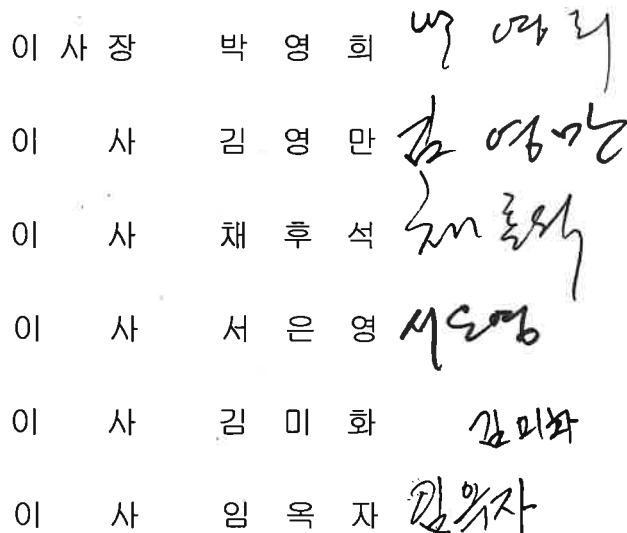 이 사 장 박 영 희 박 영 희
이 사 김 영 만 김 영 만
이 사 채 후 석 채 후석
이 사 서 은 영 서은영
이 사 김 미 화 김미화
이 사 임 옥 자 임옥자